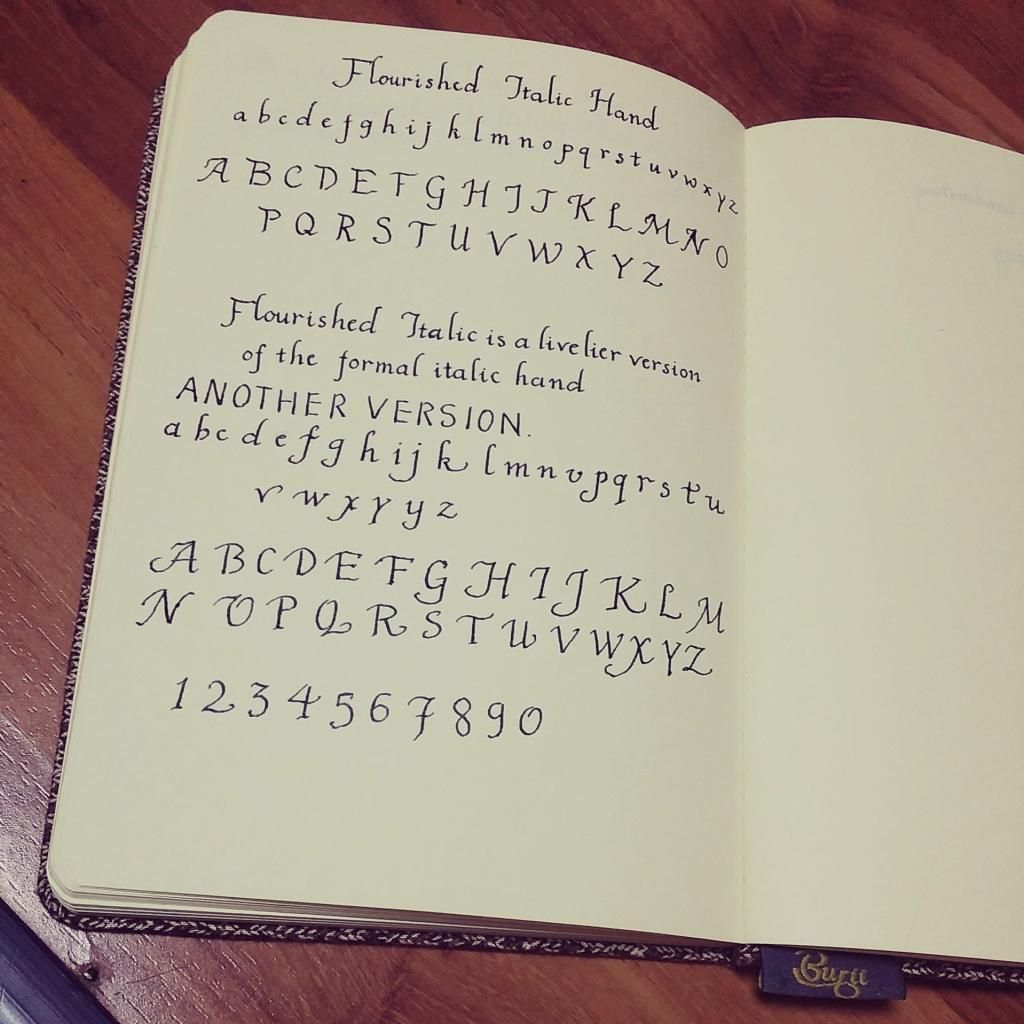 Flourished Italic Hand
a b c d e f g h i j k l m n o p q r s t u v w x y z
A B C D E F G H I J K L M N O
P Q R S T U V W X Y Z
Flourished Italic is a livelier version
of the formal italic hand
ANOTHER VERSION.
a b c d e f g h i j k l m n o p q r s t u
v w x y y z
A B C D E F G H I J K L M
N O P Q R S T U V W X Y Z
1 2 3 4 5 6 7 8 9 0